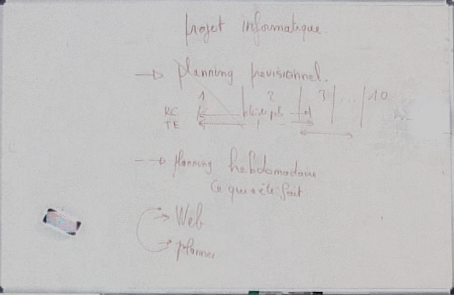 projet informatique
→ planning previsionnel.
1 2 3 ... 10
RC
TE
→ planning hebdomadaire
Ce qui a été fait
→ Web
→ planner